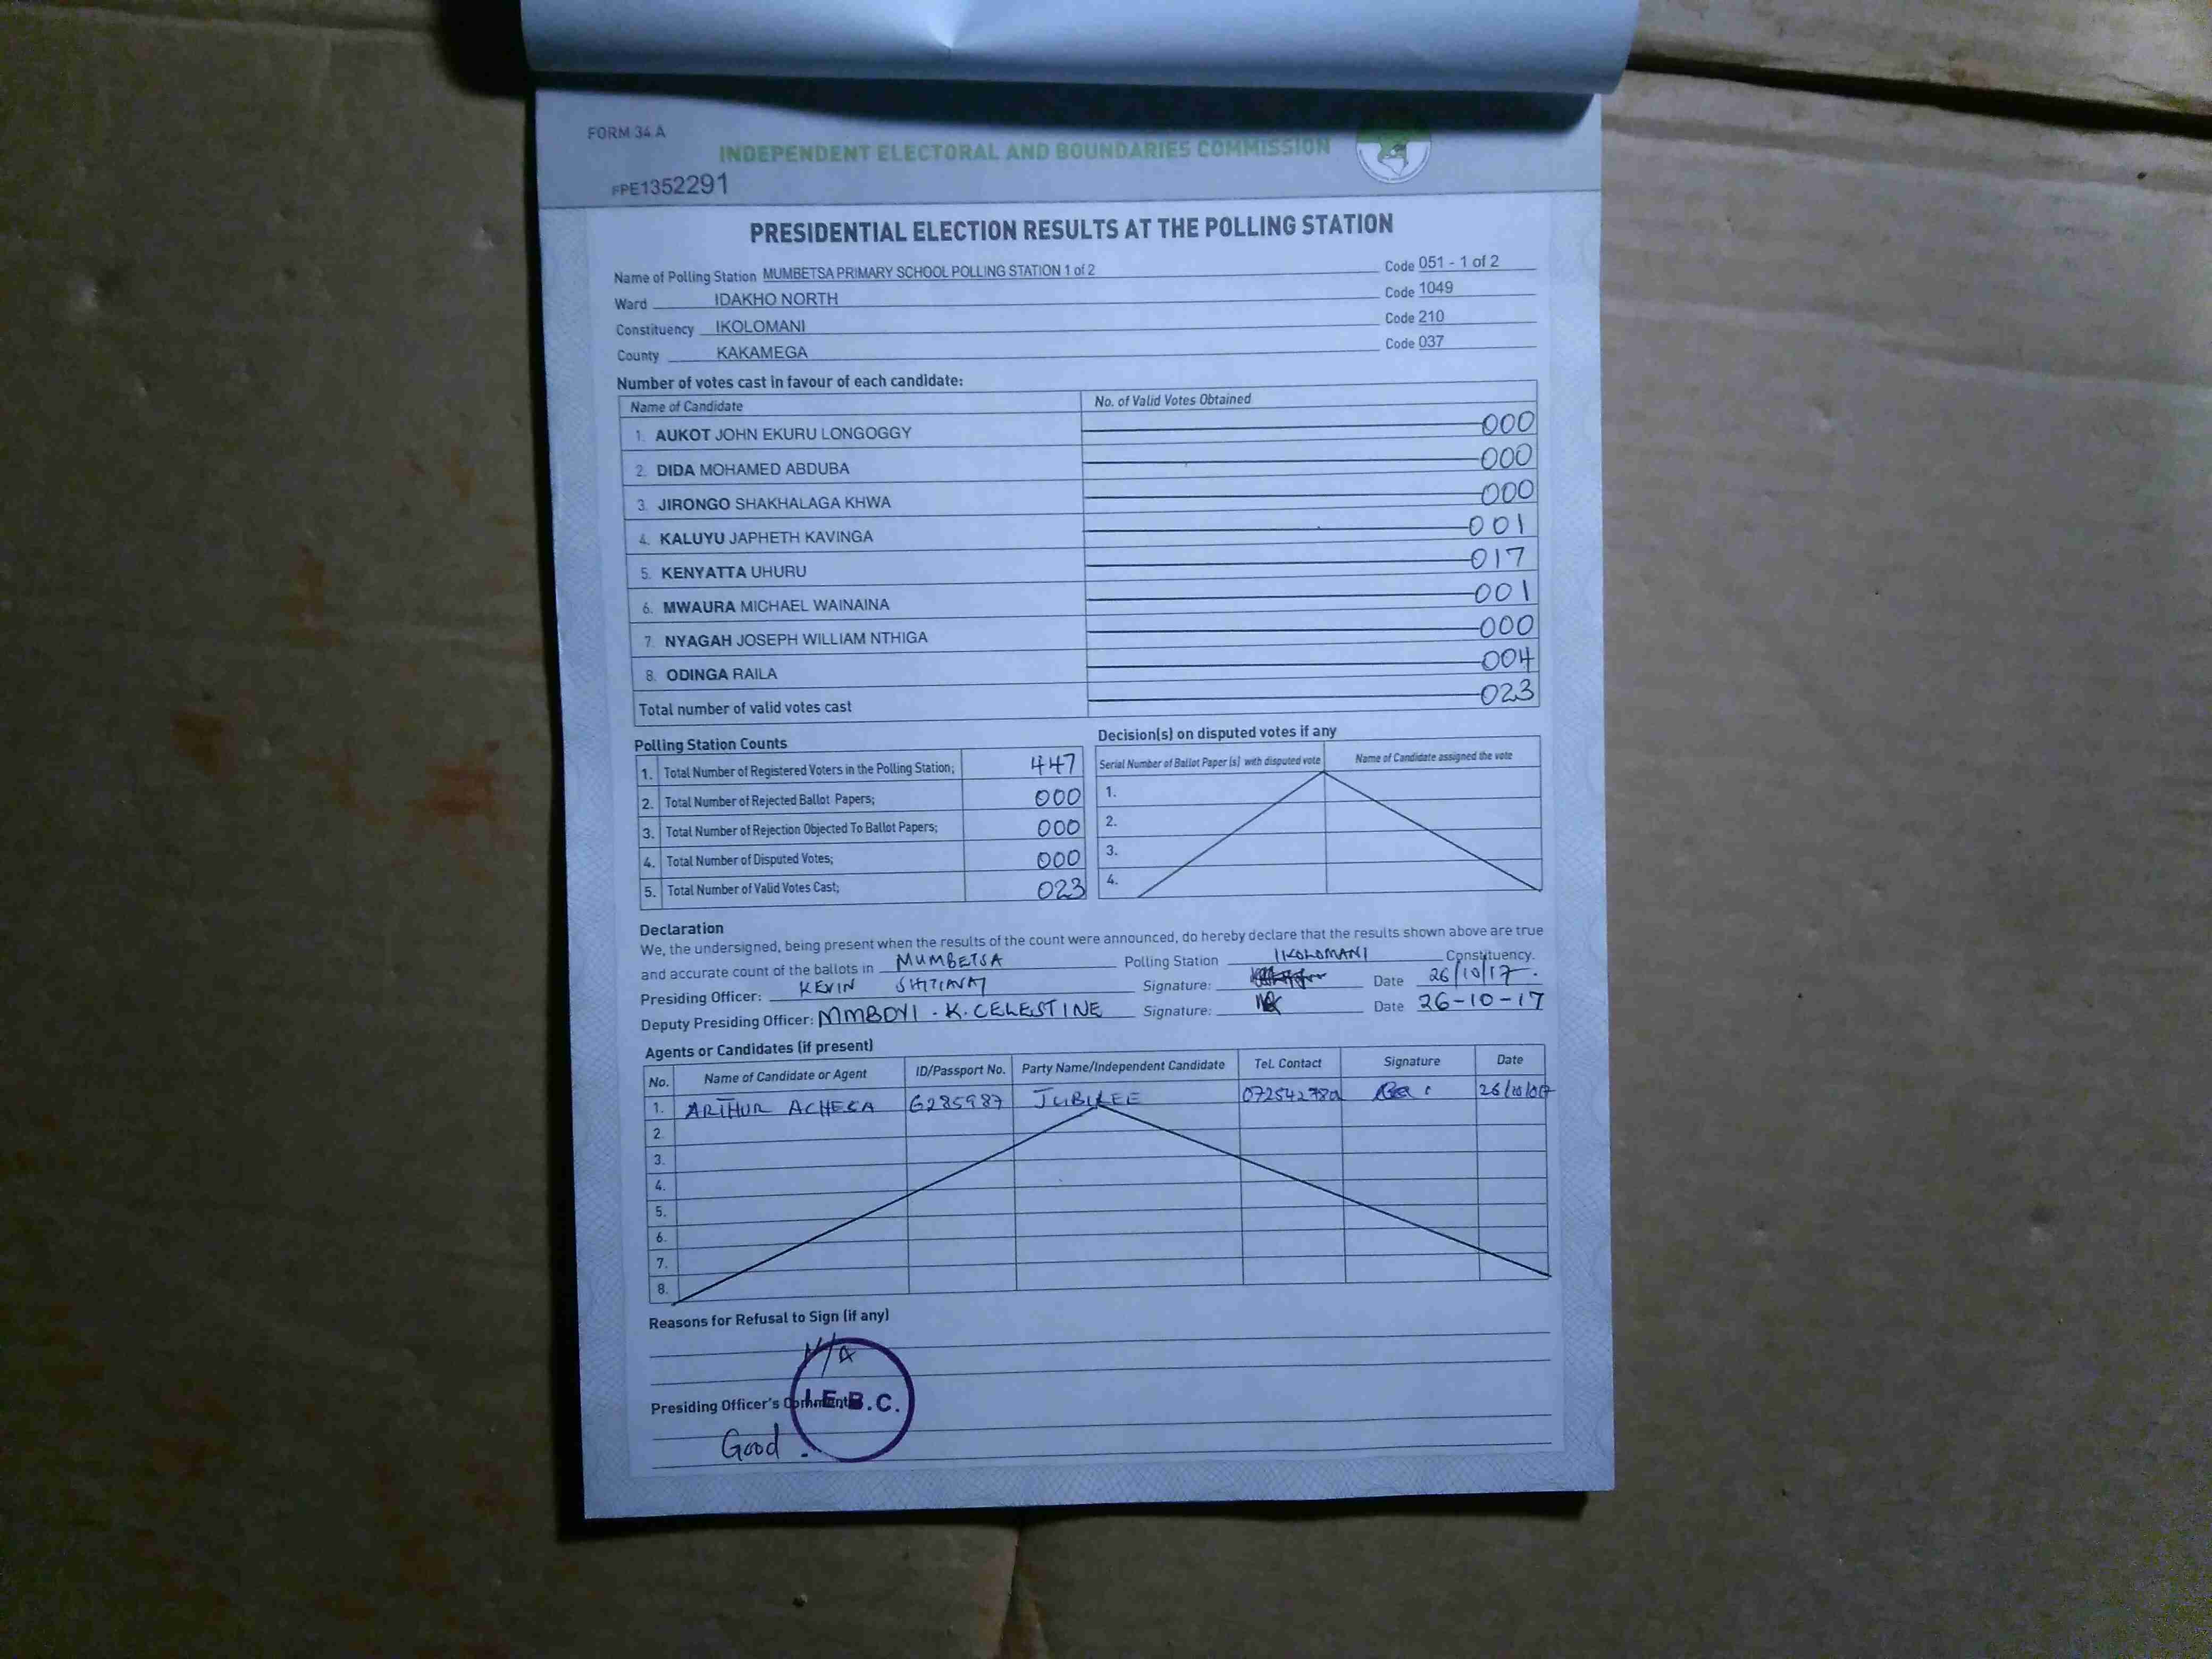 FORM 34 A
INDEPENDENT ELECTORAL AND BOUNDARIES COMMISSION
FPE1352291
PRESIDENTIAL ELECTION RESULTS AT THE POLLING STATION
Name of Polling Station MUMBETSA PRIMARY SCHOOL POLLING STATION 1 of 2 Code 051 - 1 of 2
Ward IDAKHO NORTH Code 1049
Constituency IKOLOMANI Code 210
County KAKAMEGA Code 037
Number of votes cast in favour of each candidate:
Name of Candidate No. of Valid Votes Obtained
1. AUKOT JOHN EKURU LONGOGGY 000
2. DIDA MOHAMED ABDUBA 000
3. JIRONGO SHAKHALAGA KHWA 000
4. KALUYU JAPHETH KAVINGA 001
5. KENYATTA UHURU 017
6. MWAURA MICHAEL WAINAINA 001
7. NYAGAH JOSEPH WILLIAM NTHIGA 000
8. ODINGA RAILA 004
Total number of valid votes cast 023
Polling Station Counts
1. Total Number of Registered Voters in the Polling Station; 447
2. Total Number of Rejected Ballot Papers; 000
3. Total Number of Rejection Objected To Ballot Papers; 000
4. Total Number of Disputed Votes; 000
5. Total Number of Valid Votes Cast; 023
Decision(s) on disputed votes if any
Serial Number of Ballot Paper (s) with disputed vote Name of Candidate assigned the vote
1.
2.
3.
4.
Declaration
We, the undersigned, being present when the results of the count were announced, do hereby declare that the results shown above are true
and accurate count of the ballots in MUMBETSA Polling Station IKOLOMANI Constituency.
Presiding Officer: KEVIN Signature: Date 26/10/17.
Deputy Presiding Officer: MMBOYI . K. CELESTINE Signature: Date 26-10-17
Agents or Candidates (if present)
No. Name of Candidate or Agent ID/Passport No. Party Name/Independent Candidate Tel. Contact Signature Date
1. ARTHUR 6285987 JUBILEE
2.
3.
4.
5.
6.
7.
8.
Reasons for Refusal to Sign (if any)
N/A
I.E.B.C.
Presiding Officer's Comments
Good .